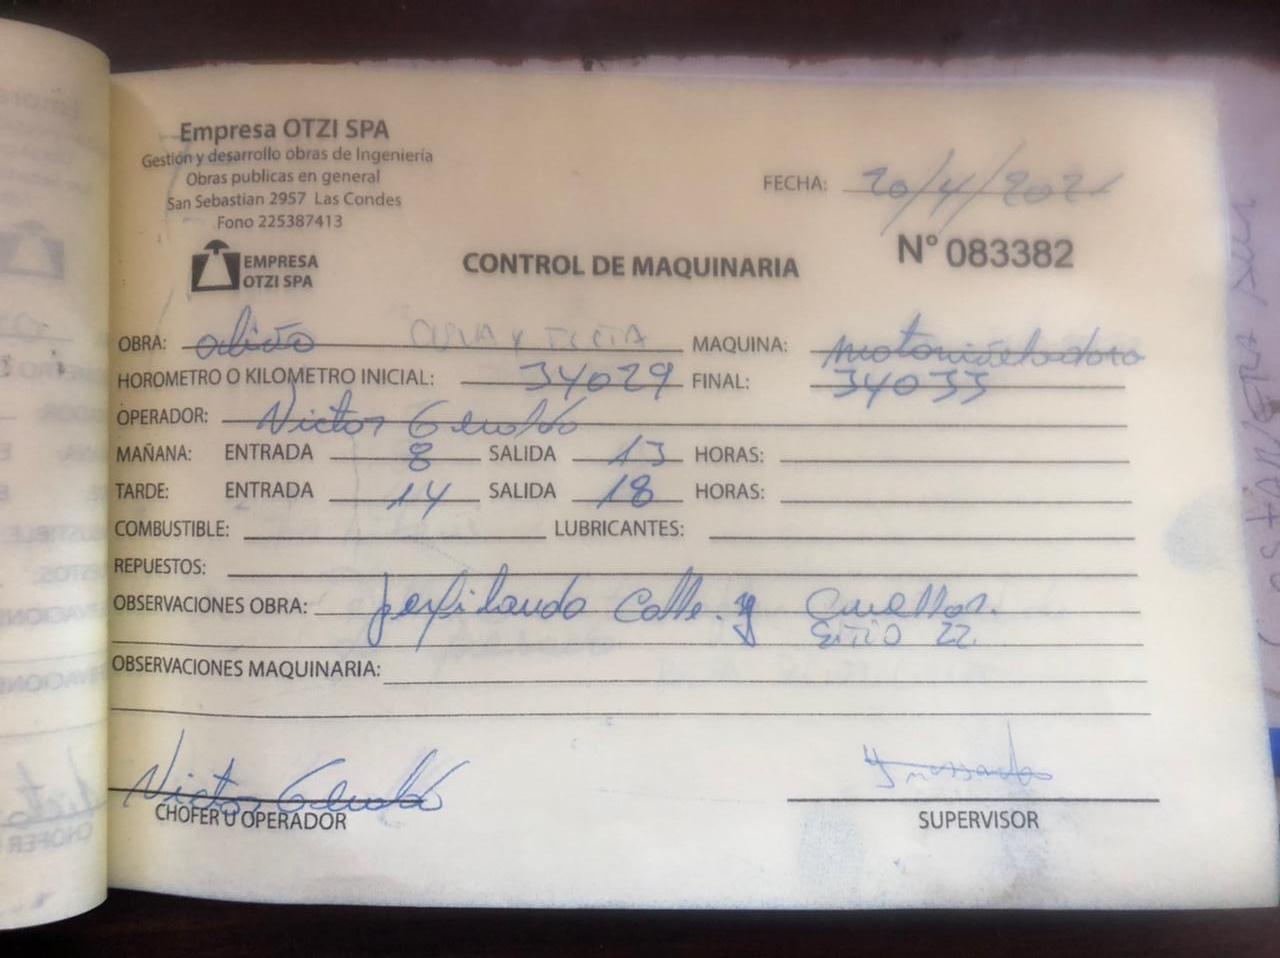 Empresa OTZI SPA
Gestión y desarrollo obras de Ingeniería
Obras publicas en general
San Sebastian 2957 Las Condes
Fono 225387413
FECHA: 20/4/2021
EMPRESA
OTZI SPA
CONTROL DE MAQUINARIA
N° 083382
OBRA: MAQUINA: motoniveladora
HOROMETRO O KILOMETRO INICIAL: 34029 FINAL: 34033
OPERADOR: Victor
MAÑANA: ENTRADA 8 SALIDA 13 HORAS:
TARDE: ENTRADA 14 SALIDA 18 HORAS:
COMBUSTIBLE: LUBRICANTES:
REPUESTOS:
OBSERVACIONES OBRA: perfilando Calle. y
SITIO 22
OBSERVACIONES MAQUINARIA:
Victor
CHOFER U OPERADOR
SUPERVISOR